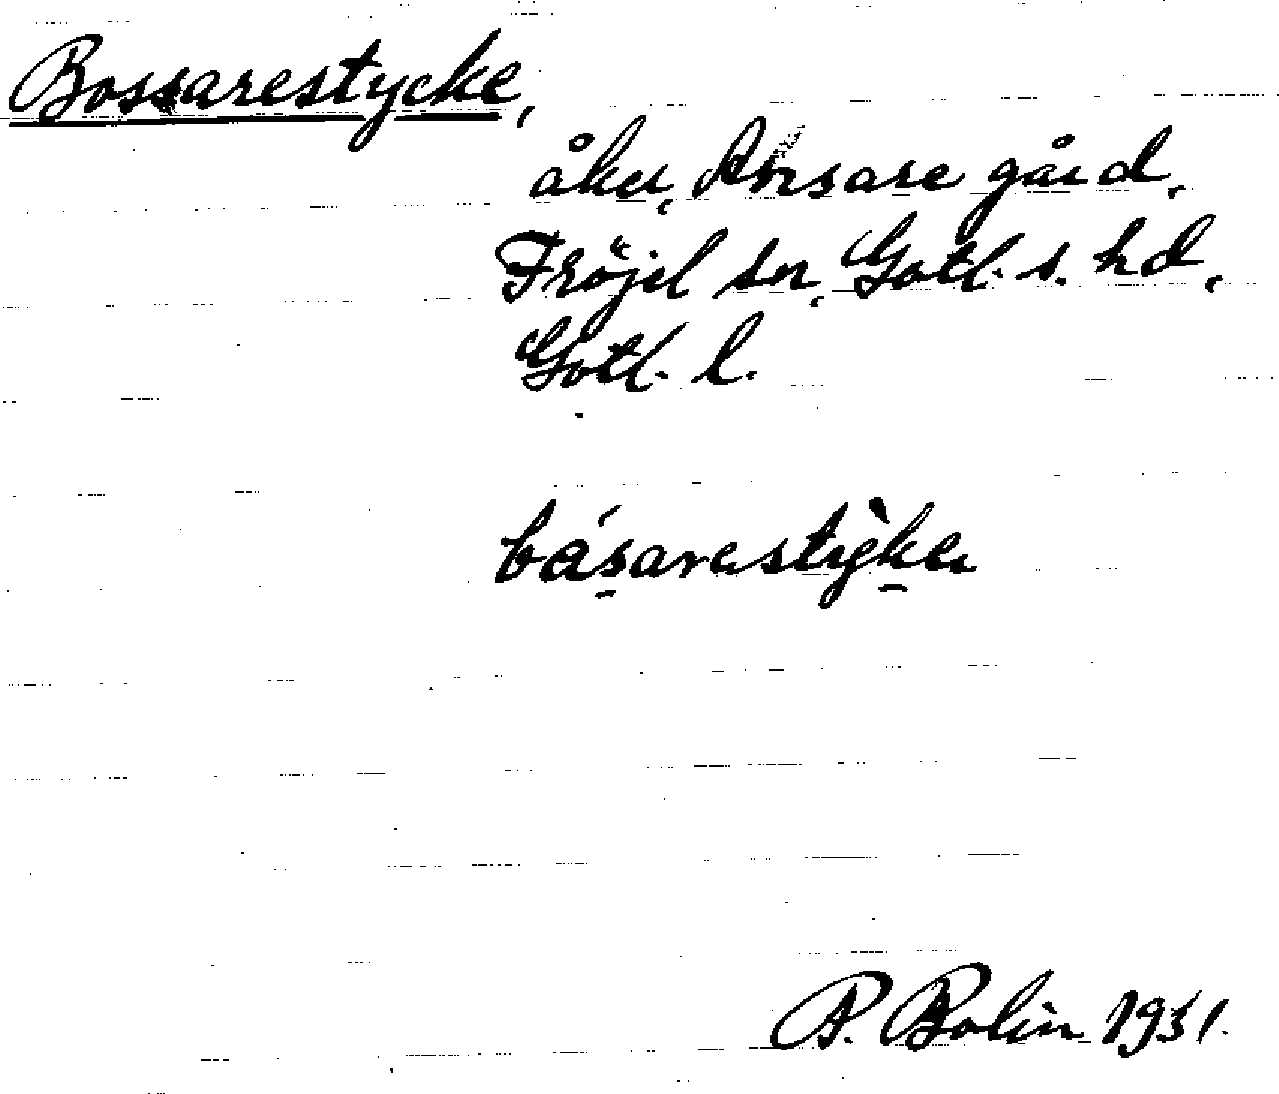 Bossarestycke,
åker, Ansare gård,
Fröjel sn, Gotl. s. hd,
Gotl. l.
básarestỳker
P. Bolin 1931.